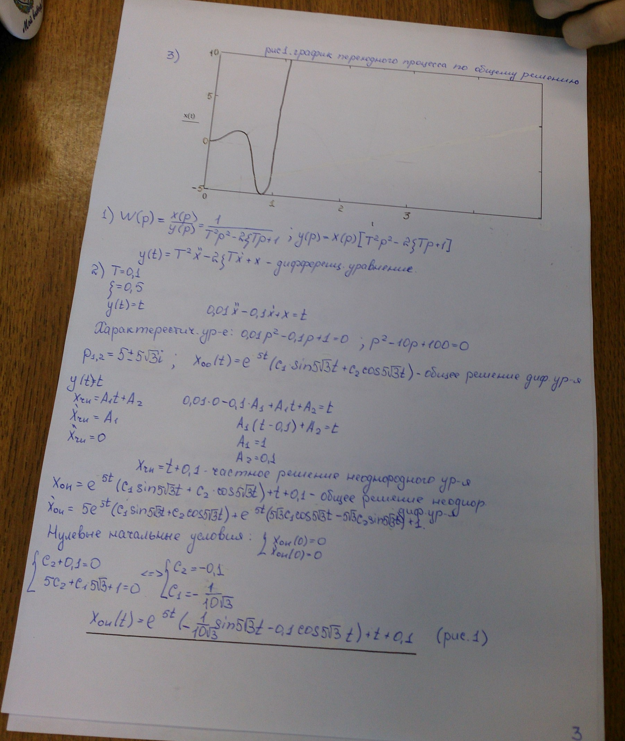 3)
рис1. график переходного процесса по общему решению
10
5
x(t)
0
-5
0 1 2 3
t
1) W(p) = x(p)/y(p) = 1/(T²p²-2ξTp+1) ; y(p) = x(p)[T²p²-2ξTp+1]
y(t) = T²ẍ-2ξTẋ+x - дифференц. уравнение
2) T=0,1
ξ=0,5
y(t)=t 0,01ẍ-0,1ẋ+x=t
Характеристич. ур-е: 0,01p²-0,1p+1=0 ; p²-10p+100=0
p₁,₂=5±5√3i ; xₒₒ(t)=e^5t(c₁ sin5√3t+c₂ cos5√3t) - общее решение диф ур-я
y(t)=t
xчн=A₁t+A₂ 0,01·0-0,1·A₁+A₁t+A₂=t
ẋчн=A₁ A₁(t-0,1)+A₂=t
ẍчн=0 A₁=1
A₂=0,1
xчн=t+0,1 - частное решение неоднородного ур-я
xон=e^5t(c₁sin5√3t+c₂·cos5√3t)+t+0,1 - общее решение неоднор
диф ур-я
ẋон=5e^5t(c₁sin5√3t+c₂cos5√3t)+e^5t(5√3c₁cos5√3t-5√3c₂sin5√3t)+1
Нулевые начальные условия: { xон(0)=0
ẋон(0)=0
{ c₂+0,1=0 <=> { c₂=-0,1
5c₂+c₁5√3+1=0 c₁=-1/(10√3)
xон(t)=e^5t(-1/(10√3) sin5√3t-0,1cos5√3t)+t+0,1 (рис.1)
3